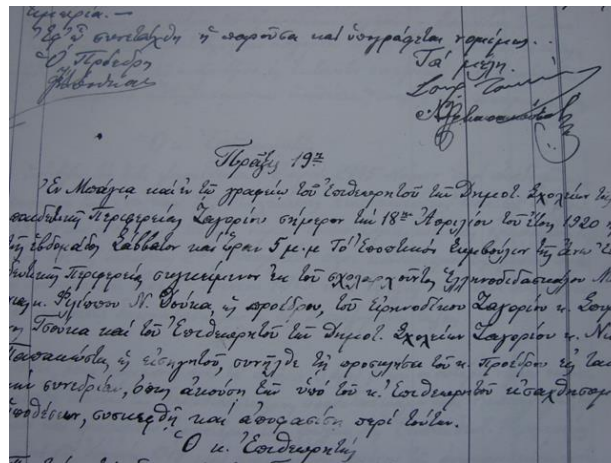 Ἐφ' ᾧ συνετάχθη ἡ παροῦσα καὶ ὑπογράφεται νομίμως..
Ὁ Πρόεδρος
Τὰ μέλη.
Πρᾶξις 19η
Ἐν Μπάγια καὶ ἐν τῷ γραφείῳ τοῦ Ἐπιθεωρητοῦ τῶν Δημοτ. Σχολείων τῆς
παιδευτικῆς Περιφερείας Ζαγορίου σήμερον τὴν 18ην Ἀπριλίου τοῦ ἔτους 1920
τῆς ἑβδομάδος Σάββατον καὶ ὥραν 5 μ.μ. Τὸ Ἐποπτικὸν Συμβούλιον τῆς ἄνω
Περιφερείας συγκείμενον ἐκ τοῦ σχολαρχοῦντος Ἑλληνοδιδασκάλου
κ. Φιλίππου Ν. Δούκα, ὡς προέδρου, τοῦ εἰρηνοδίκου Ζαγορίου κ.
Τσούκα καὶ τοῦ Ἐπιθεωρητοῦ τῶν Δημοτ. Σχολείων Ζαγορίου κ.
Παπακώστα, ὡς εἰσηγητοῦ, συνῆλθε τῇ προσκλήσει τοῦ κ. Προέδρου εἰς
συνεδρίαν, ὅπως ἀκούσῃ τῶν ὑπὸ τοῦ κ. Ἐπιθεωρητοῦ
ὑποθέσεων, συσκεφθῇ καὶ ἀποφασίσῃ περὶ τούτων.
Ὁ κ. Ἐπιθεωρητὴς